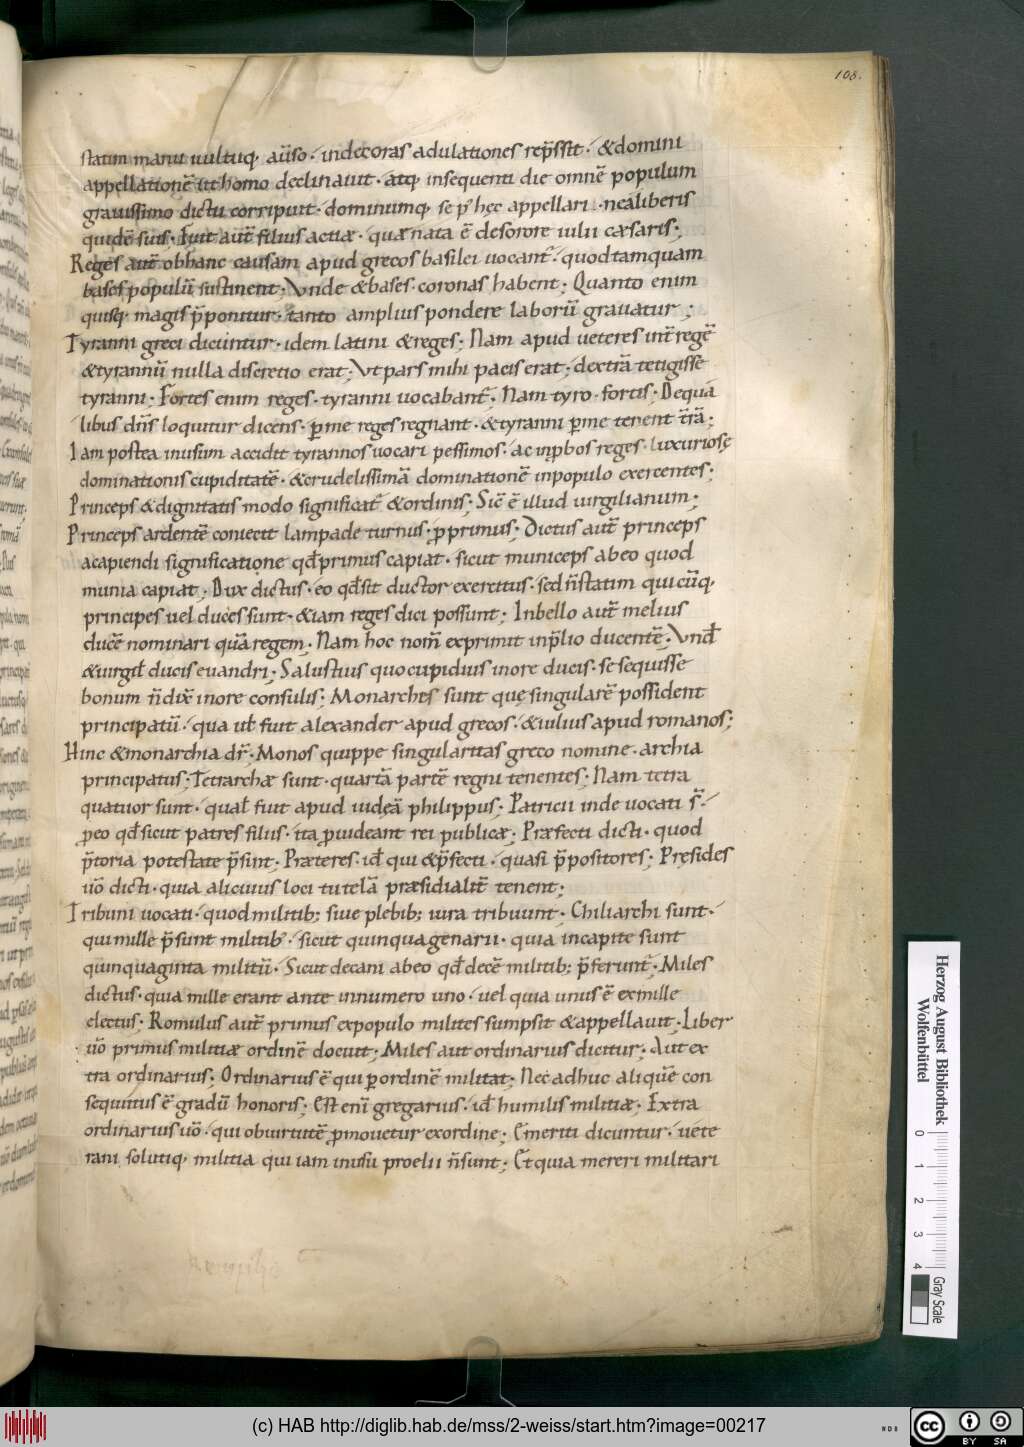 108.
statim manu uultuq; aūso · indecoras adulationes rep̄ssit · & domini
appellationē ut homo declinauit · atq; insequenti die omnē populum
grauissimo dictu corripuit · dominumq; se p̄ hęc appellari · ne a liberis
quidē suis; Fuit aūt filius actiæ · quæ nata ē de sorore iulii cæsaris;
Reges aūt ob hanc causam apud grecos basilei uocant̄ · quod tamquam
bases populū sustinent; Vnde & bases · coronas habent; Quanto enim
quisq; magis p̄ponitur · tanto amplius pondere laborū grauatur;
Tyranni greci dicuntur · idem latini & reges; Nam apud ueteres int̄ regē
& tyrannū nulla discretio erat; Vt pars mihi pacis erat; dextrā tetigisse
tyranni; Fortes enim reges · tyranni uocabant̄; Nam tyro · fortis; De qua
libus dn̄s loquitur dicens · ꝑ me reges regnant · & tyranni ꝑ me tenent t̄rā;
Iam postea in usum accidit tyrannos uocari pessimos · ac inꝓbos reges · luxuriosę
dominationis cupiditatē · & crudelissimā dominationē in populo exercentes;
Princeps & dignitatis modo significat̄ & ordinis; Sic̄ ē illud uirgilianum;
Princeps ardentē coniecit lampade turnus · ꝓ primus; Dictus aūt princeps
a capiendi significatione qd̄ primus capiat · sicut municeps ab eo quod
munia capiat; Dux dictus · eo qd̄ sit ductor exercitus · sed n̄ statim qui cūq;
principes uel duces sunt · & iam reges dici possunt; In bello aūt melius
ducē nominari quā regem; Nam hoc nom̄ exprimit in p̄lio ducentē; Vnd̄
& uirgil̄ ducis euandri; Salustius quo cupidius in ore ducis · se sequisse
bonum n̄ dix̄ in ore consulis; Monarches sunt quę singularē possident
principatū · qua ul̄ fuit alexander apud grecos · & iulius apud romanos;
Hinc & monarchia dr̄ · Monos quippe singularitas greco nomine · archia
principatus; Tetrarchæ sunt · quartā partē regni tenentes; Nam tetra
quatuor sunt · qual̄ fuit apud iudęā philippus; Patricii inde uocati s̄ ·
ꝓ eo qd̄ sicut patres filiis · ita ꝓuideant rei publicæ; Præfecti dicti · quod
p̄toria potestate p̄sint; Præteres · id̄ qui & p̄fecti · quasi p̄positores; Pręsides
uō dicti · quia alicuius loci tutelā præsidialit̄ tenent;
Tribuni uocati · quod militib; siue plebib; iura tribuunt; Chiliarchi sunt ·
qui mille p̄sunt militib; · sicut quinquagenarii · quia in capite sunt
quinquaginta militū · Sicut decani ab eo qd̄ decē militib; p̄ferunt̄; Miles
dictus · quia mille erant ante in numero uno · uel quia unus ē ex mille
electus; Romulus aūt primus ex populo milites sumpsit & appellauit; Liber
uō primus militiæ ordinē docuit; Miles aut ordinarius dicitur; Aut ex
tra ordinarius; Ordinarius ē qui ꝑ ordinē militat; Nec adhuc aliquē con
sequitus ē gradū honoris; Est enī gregarius · id̄ humilis militiæ; Extra
ordinarius uō · qui ob uirtutē ꝓmouetur ex ordine; Emeriti dicuntur · uete
rani solutiq; militia qui iam in usu proelii n̄ sunt; Et quia mereri militari
Herzog August Bibliothek
Wolfenbüttel
0 1 2 3 4
Gray Scale
(c) HAB http://diglib.hab.de/mss/2-weiss/start.htm?image=00217
cc BY SA